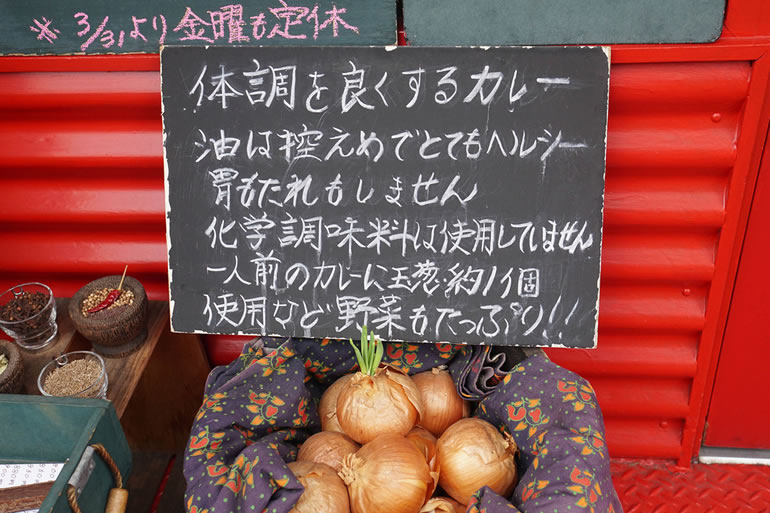 ※ 3/31より金曜も定休
体調を良くするカレー
油は控えめでとてもヘルシー
胃もたれもしません
化学調味料は使用していません
一人前のカレーに玉葱・約1個
使用など野菜もたっぷり!!